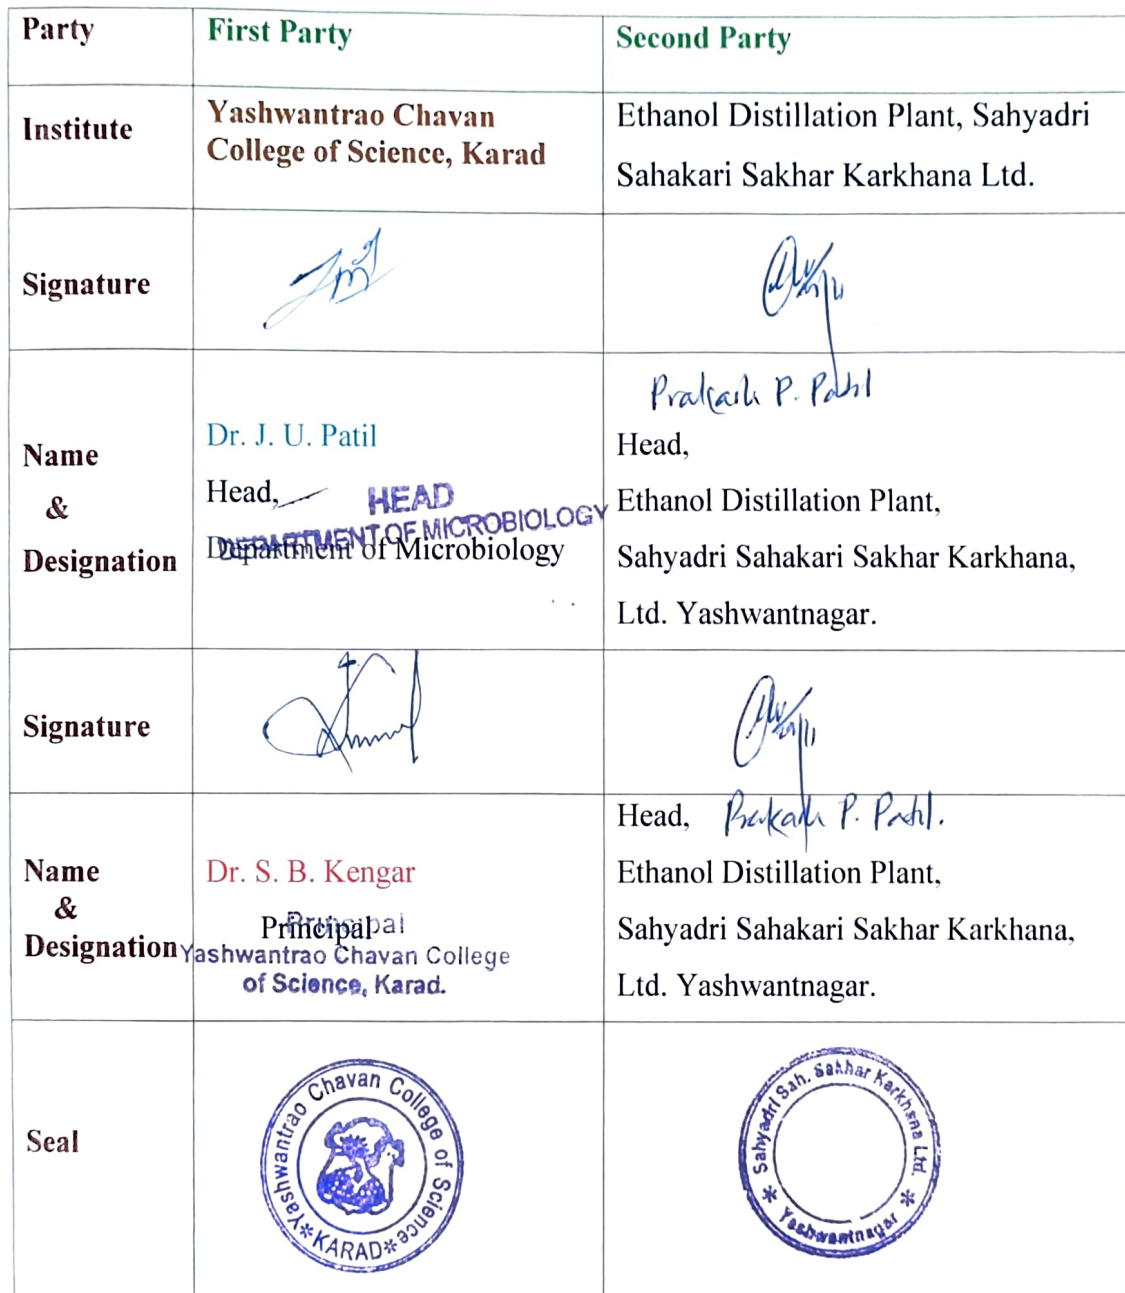 Party
First Party
Second Party
Institute
Yashwantrao Chavan
College of Science, Karad
Ethanol Distillation Plant, Sahyadri
Sahakari Sakhar Karkhana Ltd.
Signature
Name
&
Designation
Dr. J. U. Patil
Head,
HEAD
DEPARTMENT OF MICROBIOLOGY
Department of Microbiology
Prakash P. Patil
Head,
Ethanol Distillation Plant,
Sahyadri Sahakari Sakhar Karkhana,
Ltd. Yashwantnagar.
Signature
Name
&
Designation
Dr. S. B. Kengar
Principal
Principal
Yashwantrao Chavan College
of Science, Karad.
Head, Prakash P. Patil.
Ethanol Distillation Plant,
Sahyadri Sahakari Sakhar Karkhana,
Ltd. Yashwantnagar.
Seal
Yashwantrao Chavan College of Science
*KARAD*
Sahyadri Sah. Sakhar Karkhana Ltd.
* Yashwantnagar *